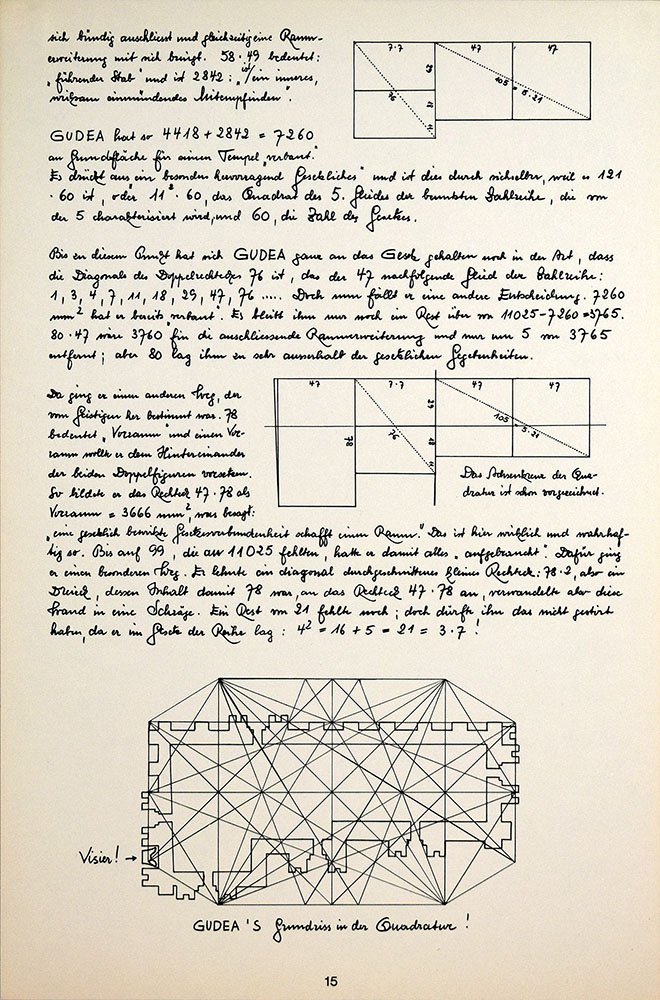 sich bündig anschliesst und gleichzeitig eine Raum-
erweiterung mit sich bringt. 58·49 bedeutet:
„führender Stab" und ist 2842: „ist/ein inneres,
wirksam einmündendes Mitempfinden".
7·7
47
47
29
76
18
11
105 = 5·21
GUDEA hat so 4418 + 2842 = 7260
an Grundfläche für einen Tempel „verbaut."
Es drückt aus ein besonders hervorragend Gesetzliches" und ist dies durch sich selber, weil es 121
·60 ist, oder 11²·60, das Quadrat des 5. Gliedes der benutzten Zahlreihe, die von
der 5 charakterisiert wird, und 60, die Zahl des Gesetzes.
Bis zu diesem Punkt hat sich GUDEA ganz an das Gesetz gehalten noch in der Art, dass
die Diagonale des Doppelrechteckes 76 ist, das der 47 nachfolgende Glied der Zahlreihe:
1, 3, 4, 7, 11, 18, 29, 47, 76 ..... Doch nun fällt er eine andere Entscheidung. 7260
mm² hat er bereits verbaut". Es bleibt ihm nur noch ein Rest über von 11025-7260=3765.
80·47 wäre 3760 für die anschliessende Raumerweiterung und nur um 5 von 3765
entfernt; aber 80 lag ihm zu sehr ausserhalb der gesetzlichen Gegebenheiten.
Da ging er einen anderen Weg, der
vom Geistigen her bestimmt war. 78
bedeutet „Vorraum" und einen Vor-
raum wollte er dem Hintereinander
der beiden Doppelfiguren vorsetzen.
So bildete er das Rechteck 47·78 als
Vorraum = 3666 mm², was besagt:
47
7·7
47
47
29
78
76
18
11
105
5·21
Das Achsenkreuz der Qua-
dratur ist schon vorgezeichnet.
„eine gesetzlich bewirkte Gesetzesverbundenheit schafft einen Raum." Das ist hier wirklich und wahrhaf-
tig so. Bis auf 99, die an 11025 fehlten, hatte er damit alles „aufgebraucht". Dafür ging
er einen besonderen Weg. Er lehnte ein diagonal durchgeschnittenes kleines Rechteck: 78·2, also ein
Dreieck, dessen Inhalt damit 78 war, an das Rechteck 47·78 an, verwandelte aber diese
Wand in eine Schräge. Ein Rest von 21 fehlte noch; doch dürfte ihn das nicht gestört
haben, da er im Gesetz der Reihe lag: 4² = 16 + 5 = 21 = 3·7!
Visier! →
GUDEA'S Grundriss in der Quadratur!
15